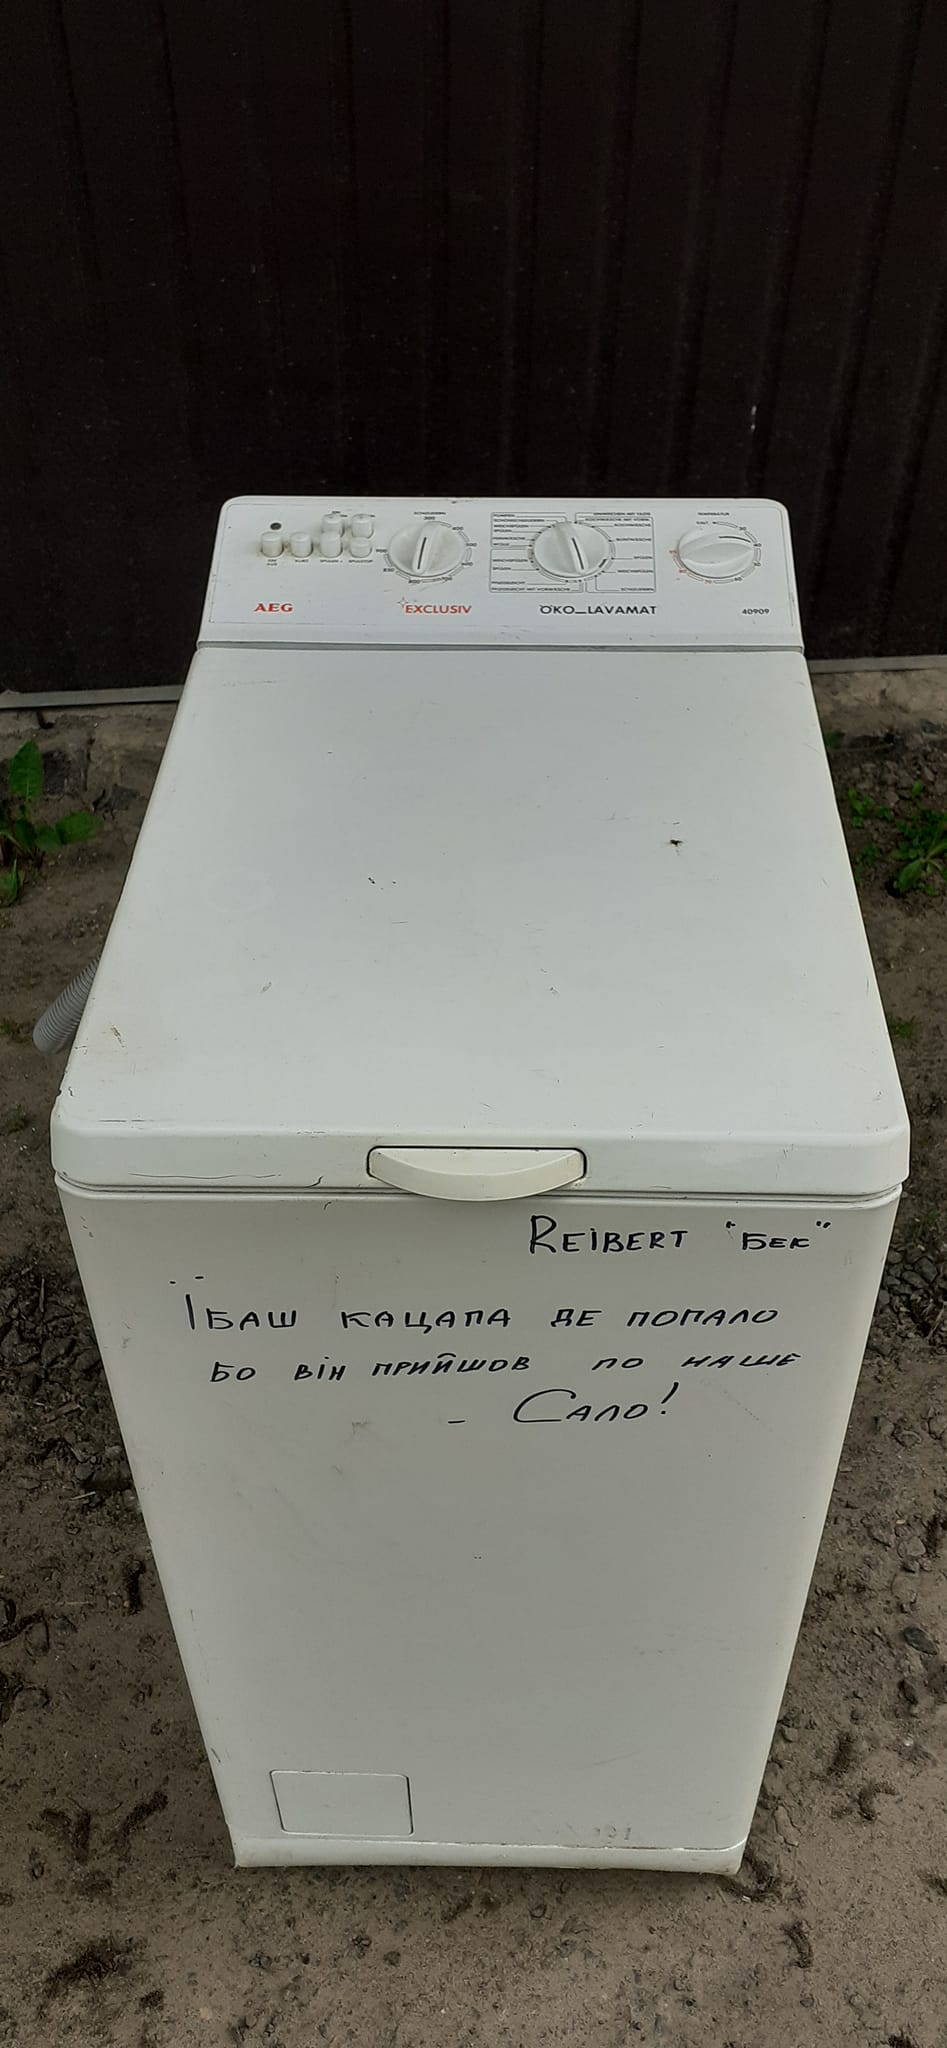 SCHLEUDERN
TEMPERATUR
AEG EXCLUSIV ÖKO_LAVAMAT 40909
REIBERT "БЕК"
ЇБАШ КАЦАПА ДЕ ПОПАЛО
БО ВІН ПРИЙШОВ ПО НАШЕ
- САЛО!